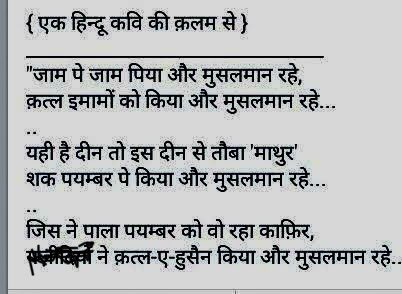 { एक हिन्दू कवि की क़लम से }
"जाम पे जाम पिया और मुसलमान रहे,
क़त्ल इमामों को किया और मुसलमान रहे...
..
यही है दीन तो इस दीन से तौबा 'माथुर'
शक पयम्बर पे किया और मुसलमान रहे...
..
जिस ने पाला पयम्बर को वो रहा काफ़िर,
ने क़त्ल-ए-हुसैन किया और मुसलमान रहे..